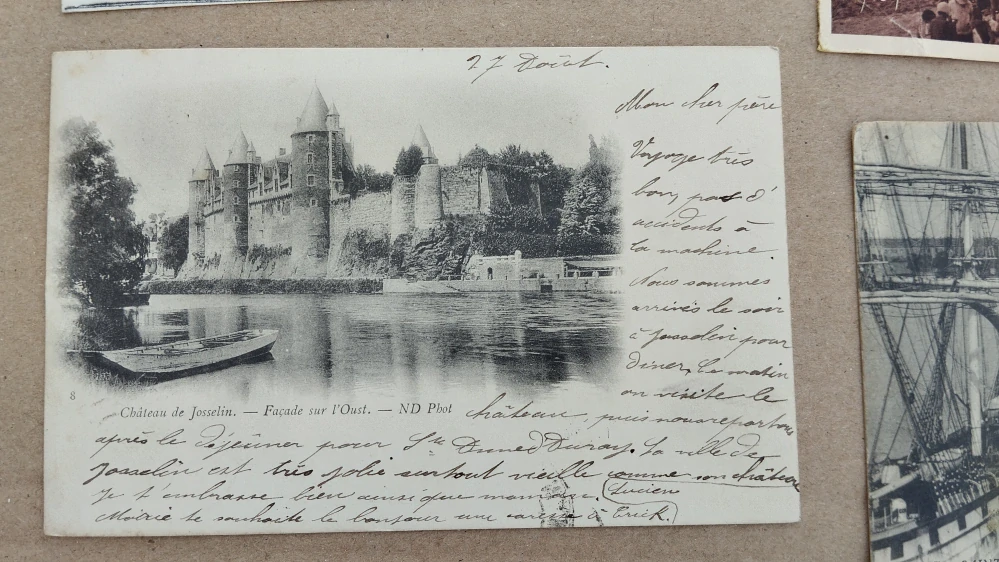 27 Août.
Mon cher père
Voyage très
bon, pas d'
accidents à
la machine.
Nous sommes
arrivés le soir
à Josselin pour
dîner. Ce matin
on visite le
château, puis nous repartons
après le déjeûner pour Ste Anne d'Auray. La ville de
Josselin est très jolie surtout vieille comme son château
Je t'embrasse bien ainsi que maman.
Lucien
te souhaite le bonjour une caresse à
8
Château de Josselin. — Façade sur l'Oust. — ND Phot